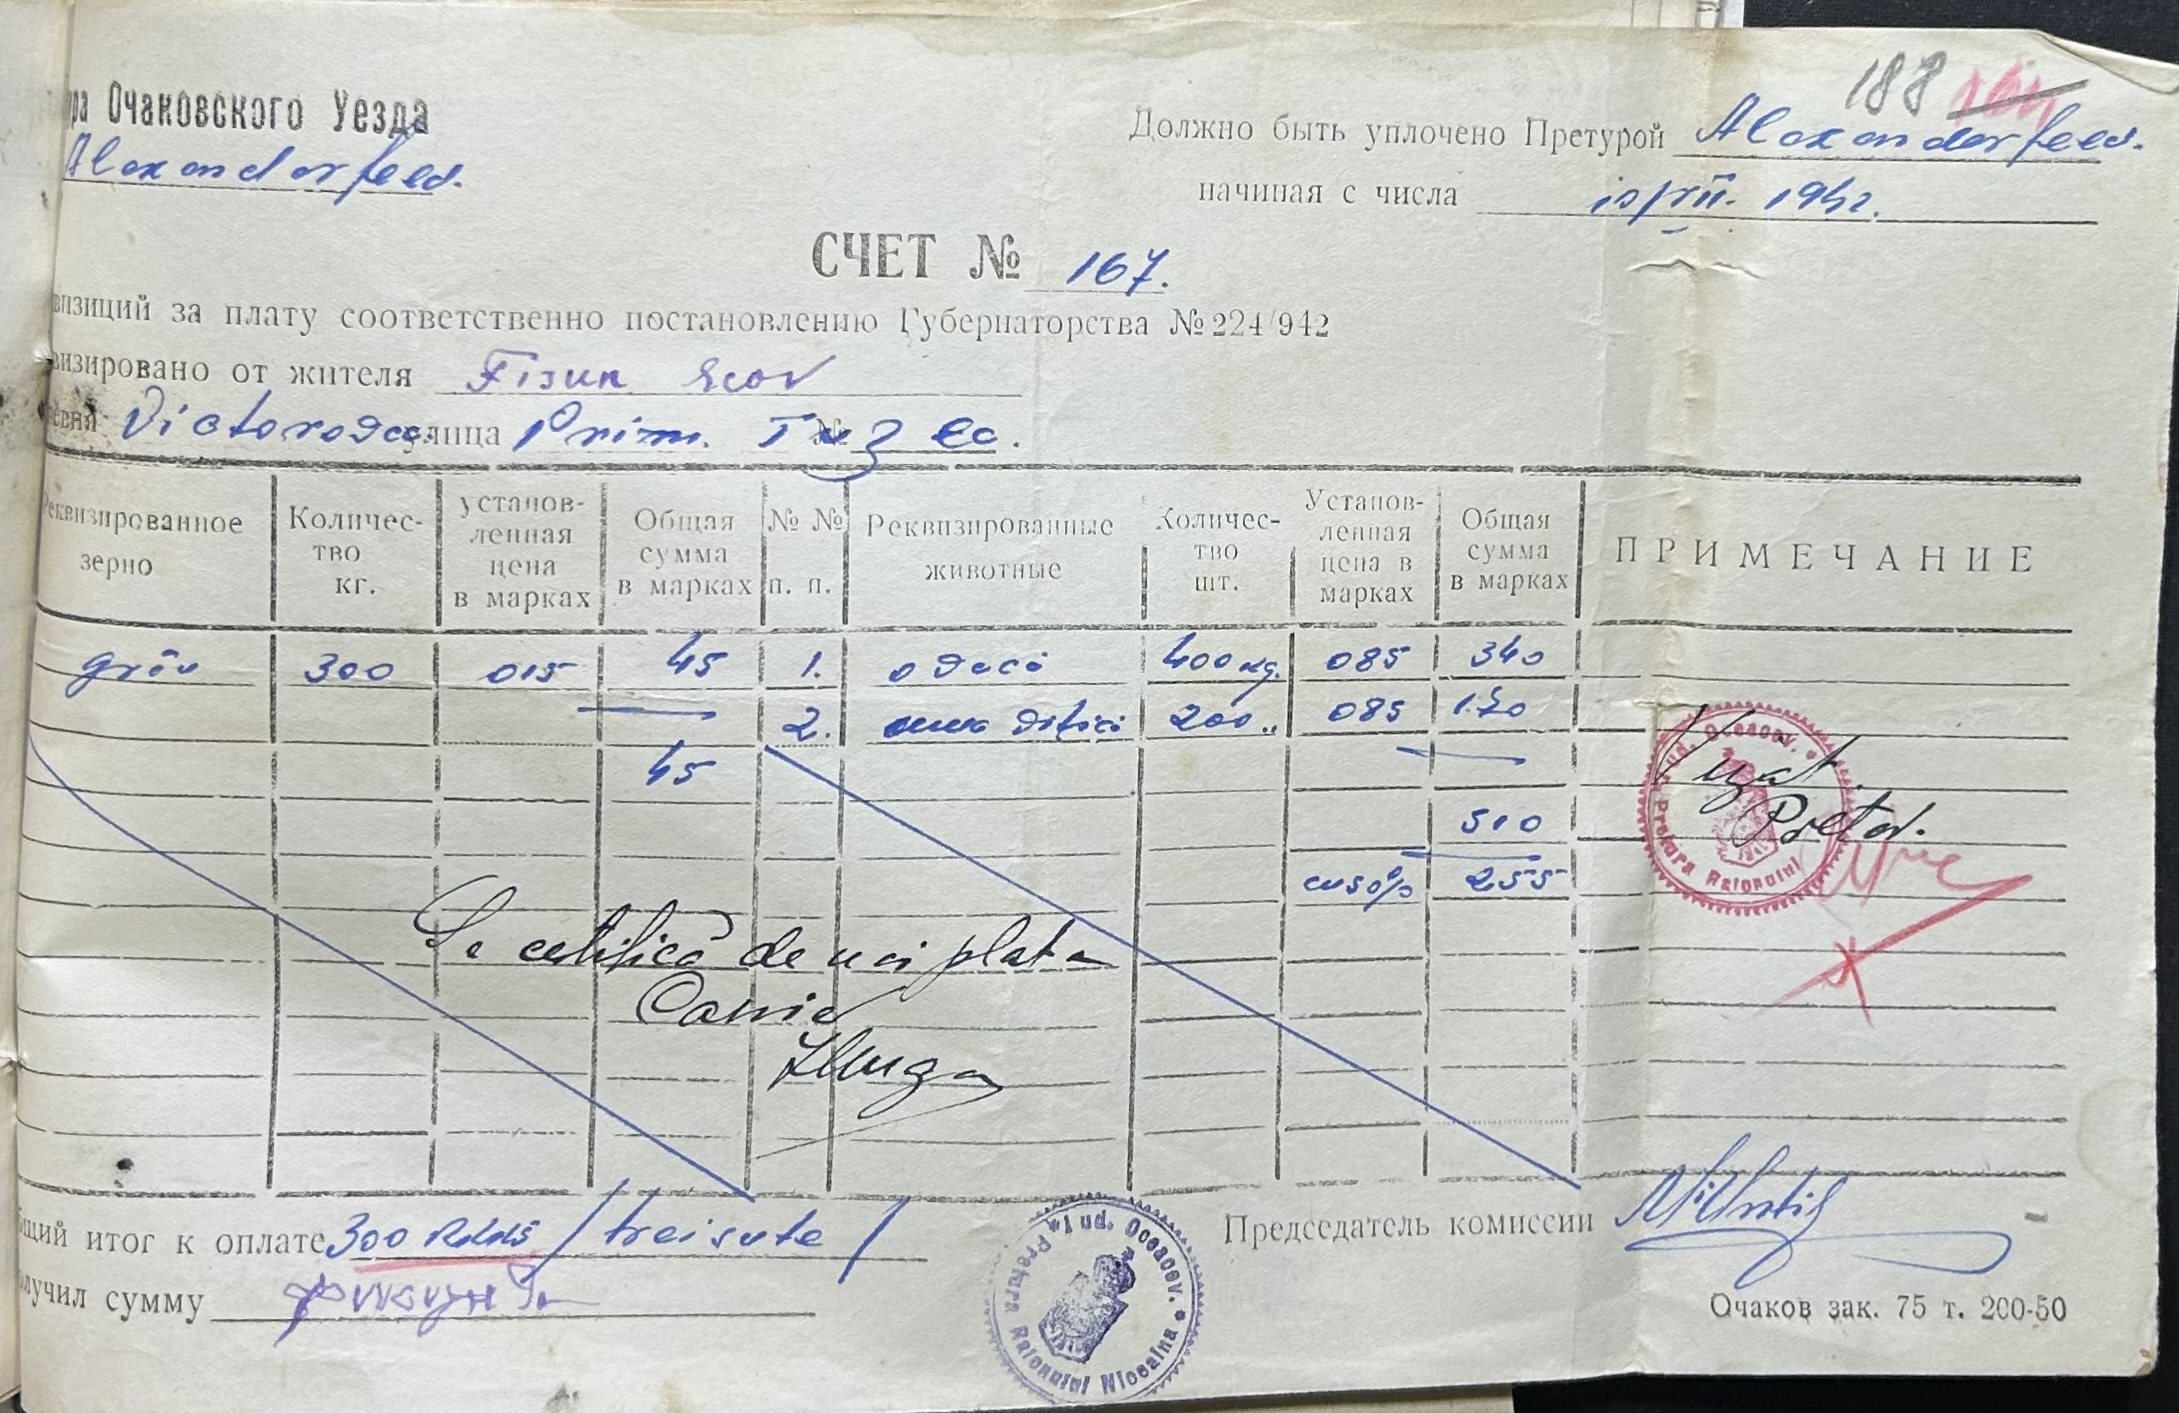 188
ра Очаковского Уезда
Alexanderfeld.
Должно быть уплочено Претурой Alexanderfeld.
начиная с числа 1942.
СЧЕТ № 167.
визиций за плату соответственно постановлению Губернаторства № 224/942
визировано от жителя Fisun
вня улица Prim. №
Реквизированное зерно
Количес-тво кг.
установ-ленная цена в марках
Общая сумма в марках
№ № п. п.
Реквизированные животные
Количес-тво шт.
Установ-ленная цена в марках
Общая сумма в марках
ПРИМЕЧАНИЕ
grâu 300 015 45 1. o vacă 400 kg. 085 340
2. 200 „ 085 170
45
510
cu 50% 255
Vizat.
Pretor.
Jud. Oceacov. * Pretura Raionului
Se certifică de noi plata
Casier
щий итог к оплате 300 / treisute /
лучил сумму Фисун
* Jud. Oceacov. * Pretura Raionului
Председатель комиссии
Очаков зак. 75 т. 200-50